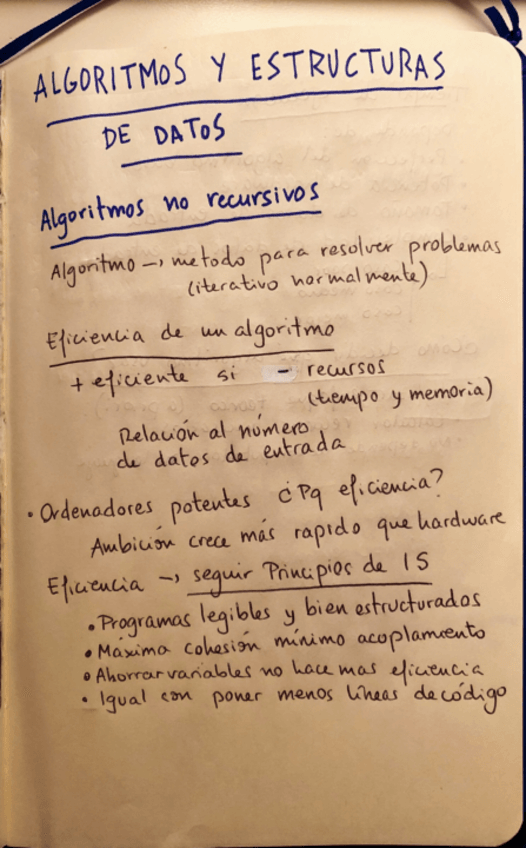 ALGORITMOS Y ESTRUCTURAS
DE DATOS
Algoritmos no recursivos
Algoritmo → metodo para resolver problemas
(iterativo normalmente)
Eficiencia de un algoritmo
+ eficiente si - recursos
(tiempo y memoria)
Relación al número
de datos de entrada
• Ordenadores potentes ¿Pq eficiencia?
Ambición crece más rapido que hardware
Eficiencia → seguir Principios de IS
• Programas legibles y bien estructurados
• Máxima cohesión mínimo acoplamiento
• Ahorrar variables no hace mas eficiencia
• Igual con poner menos líneas de código